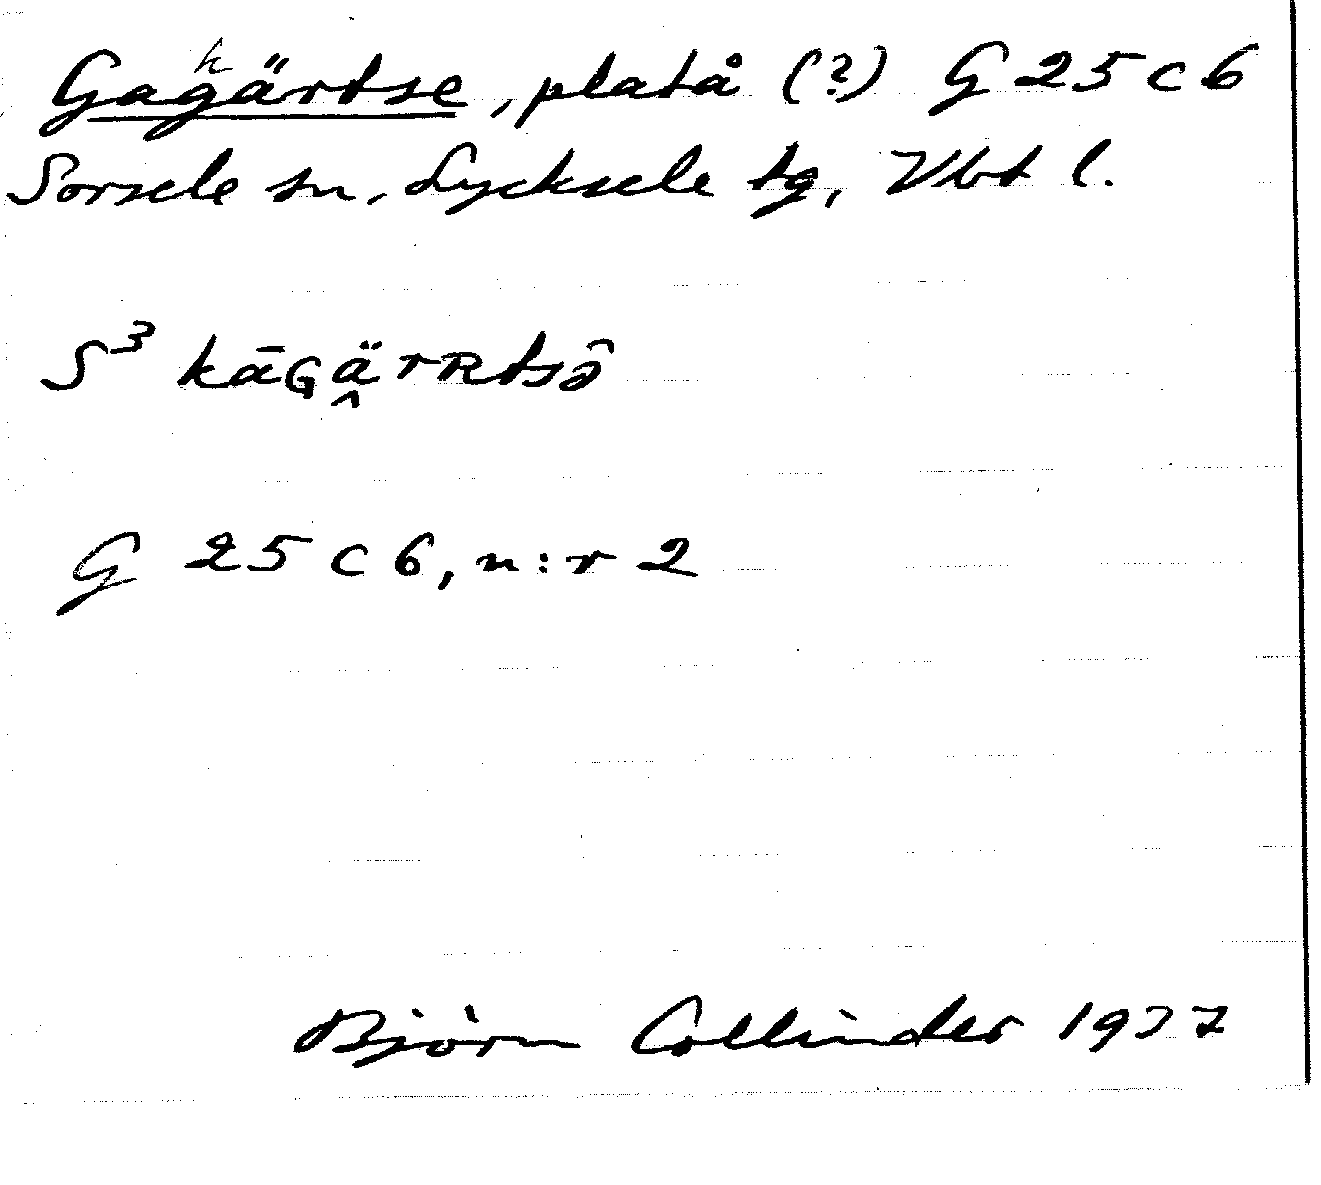 Gagärtse, platå (?) G 25 c 6
Sorsele sn, Lycksele tg, Vbt l.
S³ kāGä̭rRtsə̂
G 25 c 6, n:r 2
Björn Collinder 1937